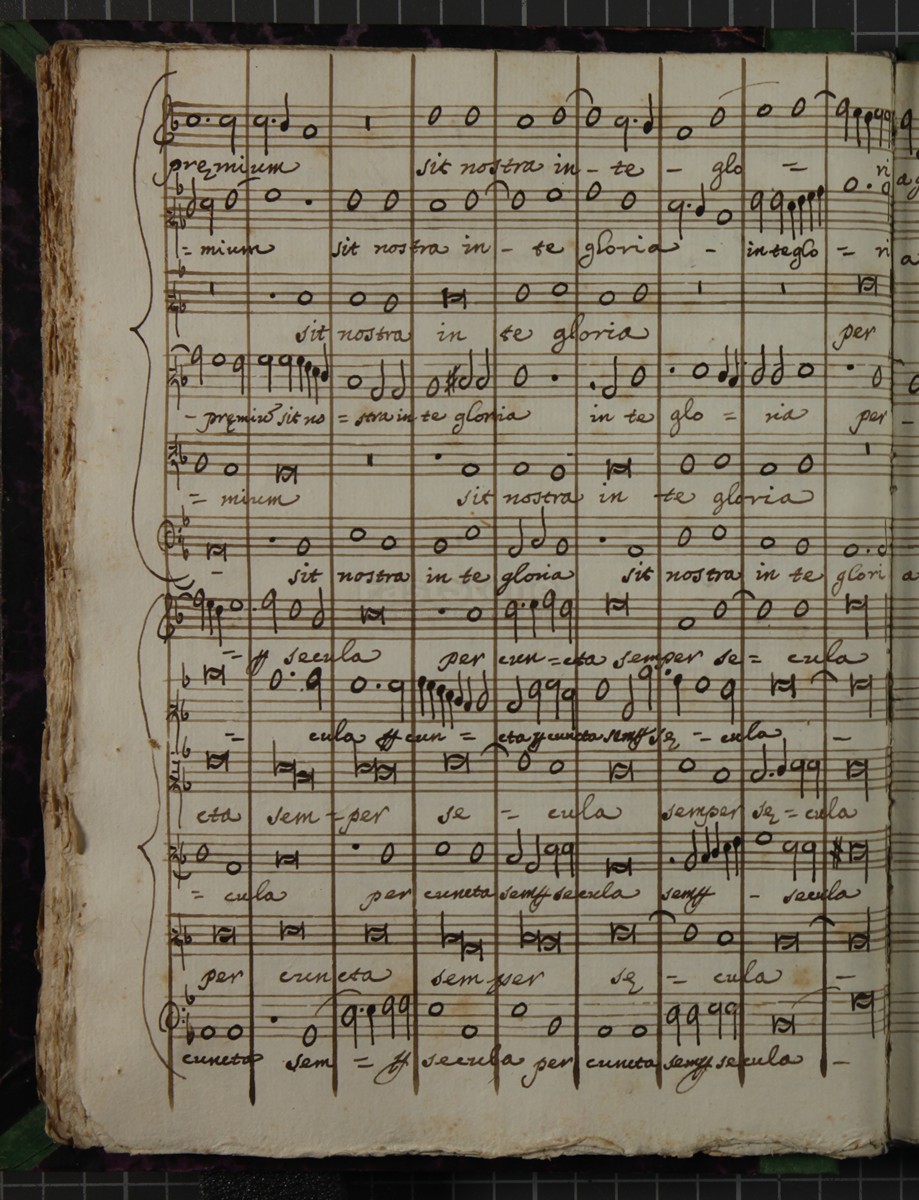 pręmium sit nostra in - te - glo = ri
= mium sit nostra in - te gloria - in te glo = ri
sit nostra in te gloria per
- pręmiũ sit no = stra in te gloria in te glo = ria per -
= mium sit nostra in te gloria
- sit nostra in te gloria sit nostra in te glori a
= secula per cun = cta semper se = cula
= cula cun = cta cuncta sę - cula -
cta sem = per se = cula semper sę = cula
= cula per cuncta secula - secula
per cuncta semper sę = cula -
cuncta sem = secula per cuncta secula -